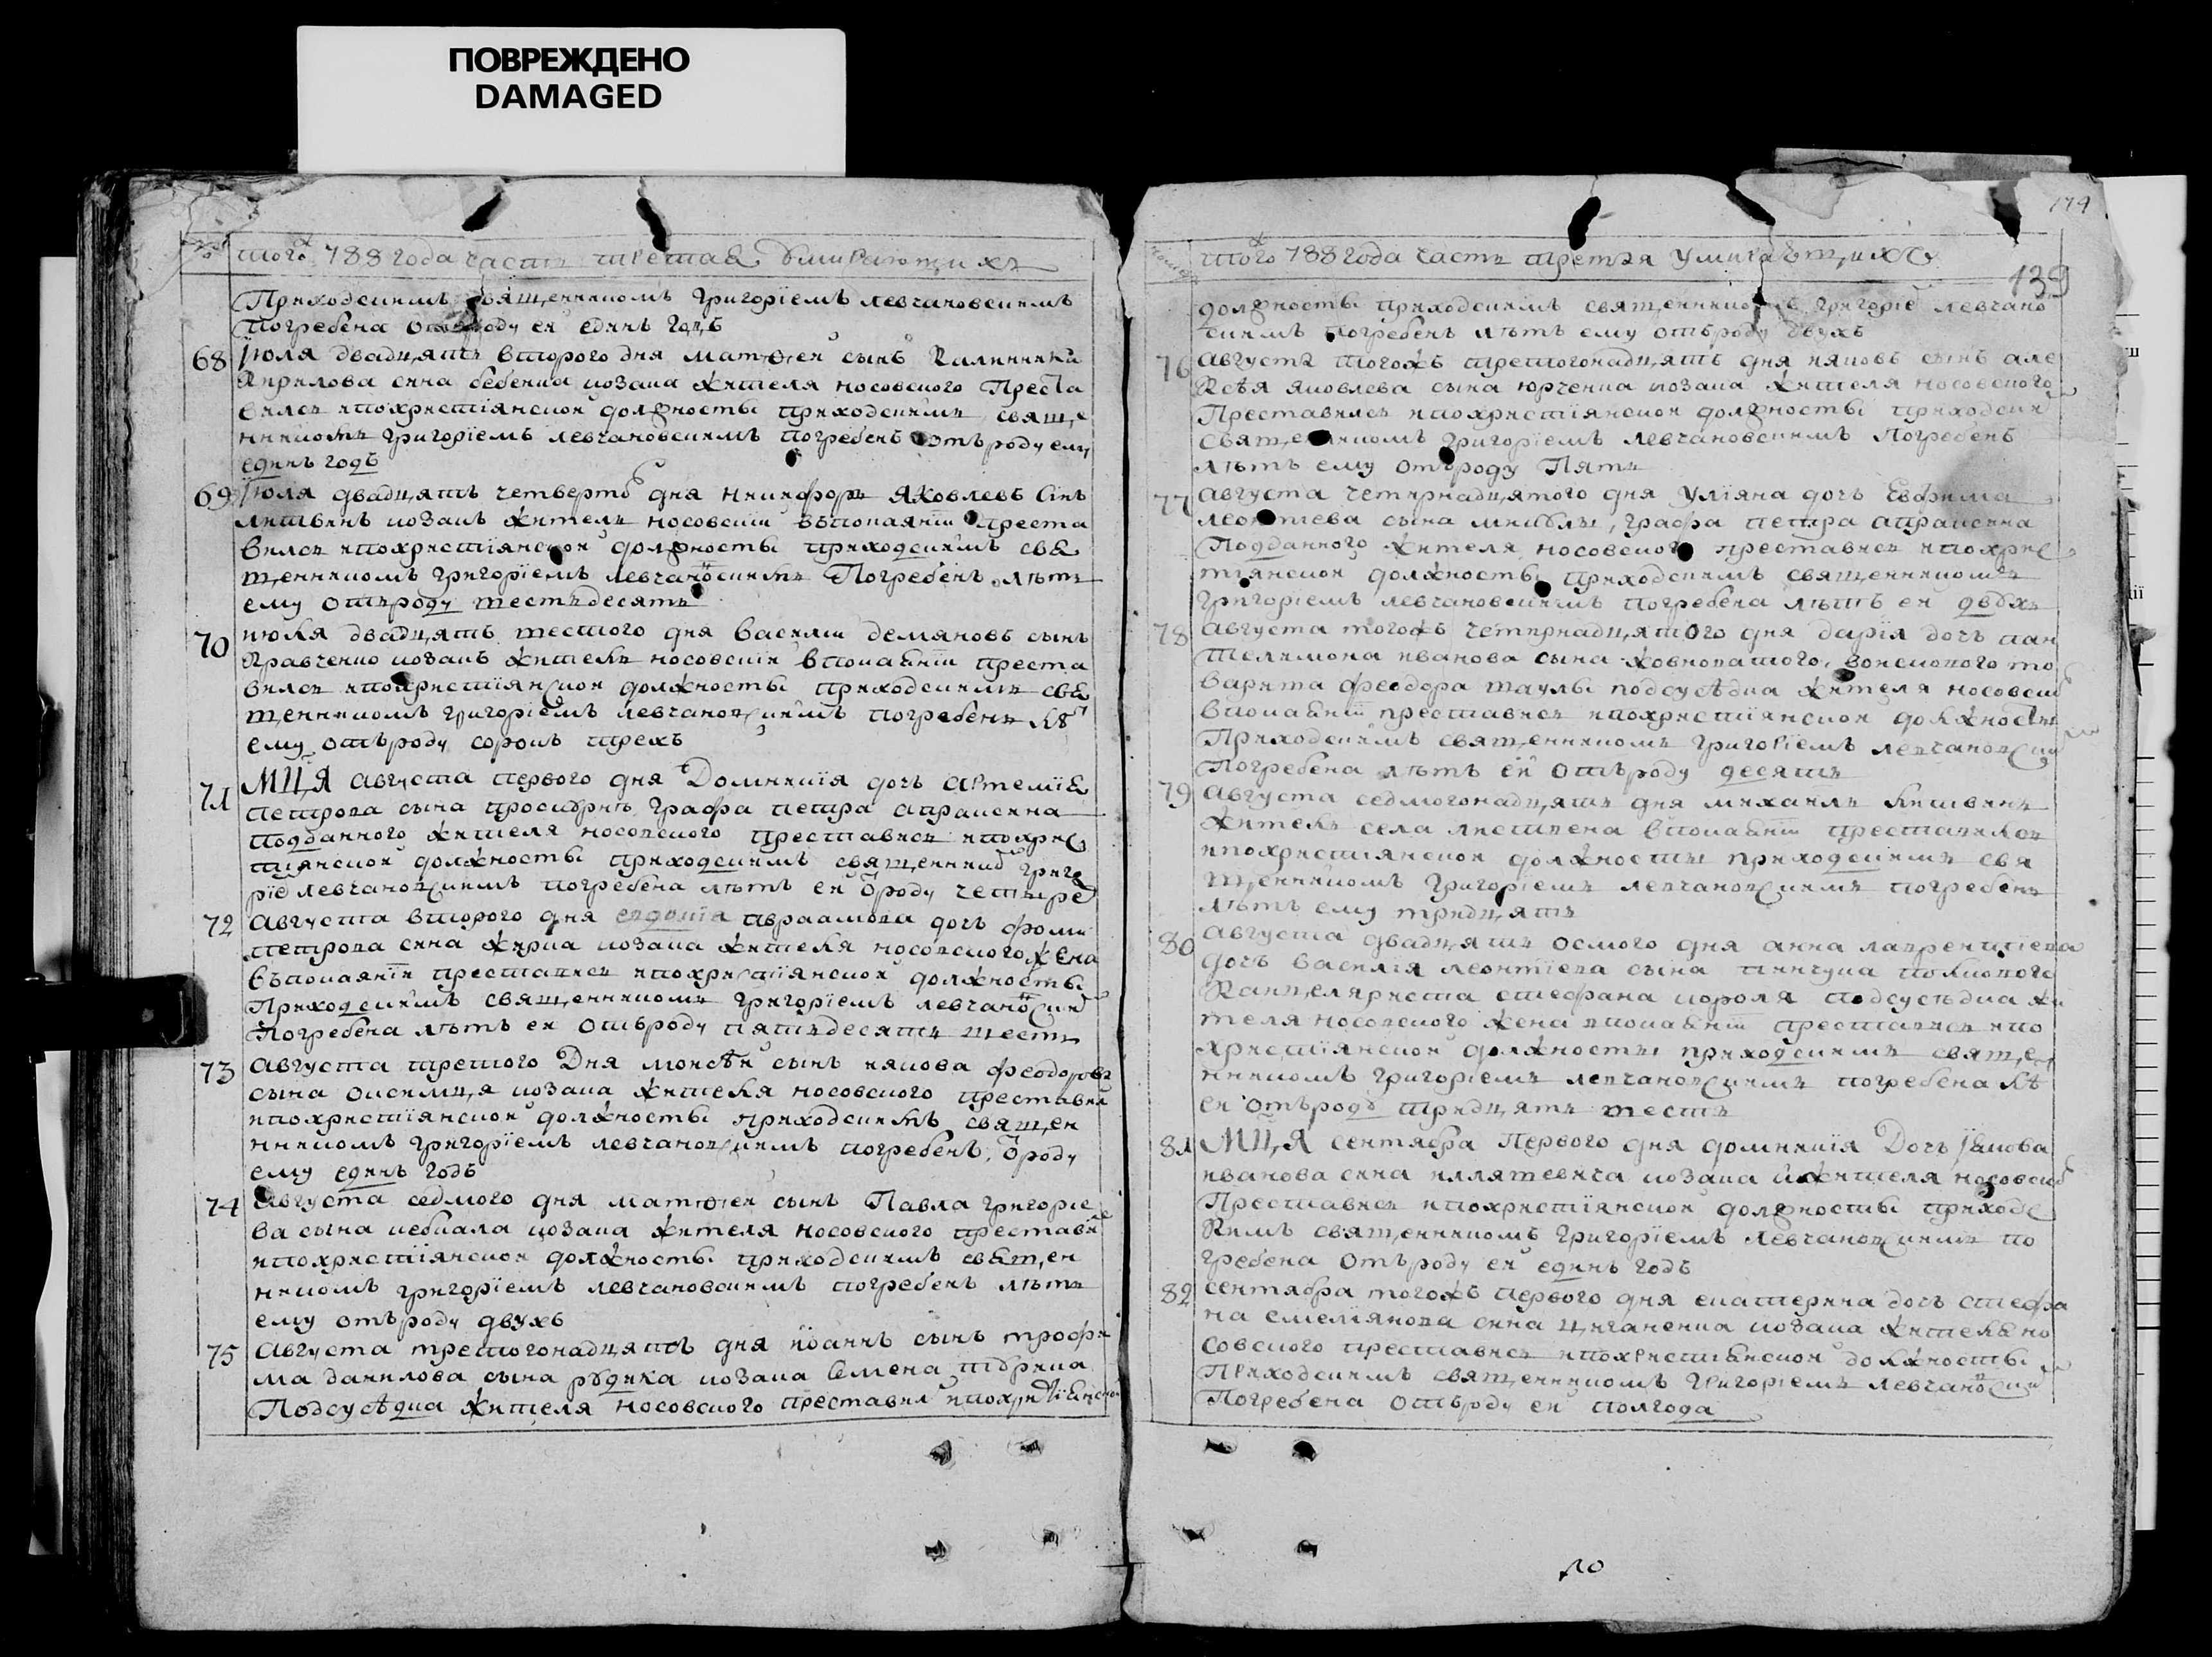 ПОВРЕЖДЕНО
DAMAGED
того 788 года часть третая умирающихъ
Приходскимъ священникомъ григоріемъ левчановскимъ
погребена отъ роду ей единъ годъ
68 Іюля двадцять второго дня матѳей сынъ калинника
кирилова сина бебенка козака жителя носовского Преста
вился ипохристіянской должносты приходскимъ свяще
нникомъ григоріемъ левчановскимъ погребенъ отъ роду ему
единъ годъ
69 Іюля двадцять четверто дня никифоръ яковлевъ синъ
литвинъ козакъ житель носовскій въпокаяніи преста
вился ипохристіянской должносты приходскимъ свя
щенникомъ григоріемъ левчановскимъ Погребенъ лѣтъ
ему отъроду шестьдесятъ
70 июля двадцять шестого дня василій демяновъ сынъ
кравченко козакъ житель носовскій впокаяніи преста
вился ипохристіянской должносты приходскимъ свя
щенникомъ григоріемъ левчановскимъ погребенъ лѣт
ему отъроду сорокъ трехъ
71 МЦ,Я августа первого дня Домникія дочъ артемія
петрова сына проскурнѣ графа петра апраксина
подданного жителя носовского преставися ипохрис
тіянской должносты приходскимъ священнико григо
ріе левчановскимъ погребена лѣтъ ей ѿроду четыре
72 августа второго дня евдокія авраамова дочъ фоми
петрова сина козака жителя носовского жена
въпокаянія преставися ипохристіянской должносты
Приходскимъ священникомъ григоріемъ левчановски
Погребена лѣтъ ей отъроду пятьдесятъ шесть
73 августа третого Дня моисѣй сынъ якова феодорова
сына козака жителя носовского преставил
ипохристіянской должносты приходскимъ священ
нникомъ григоріемъ левчановскимъ погребенъ ѿроду
ему единъ годъ
74 августа седмого дня матѳей сынъ Павла григорие
ва сына кебкала козака жителя носовского преставил
ипохристіянской должносты приходскимъ священ
никомъ григоріемъ левчановскимъ погребенъ лѣтъ
ему отъроду двухъ
75 августа третогонадцять дня іоаннъ сынъ трофи
ма данилова сына рудика козака Семена
Подсусѣдка жителя носовского преставил ипохристіянской
того 788 года часть третяя умирающихъ
174
139
должносты приходскимъ священникомъ григоріе левчано
скимъ погребенъ лѣтъ ему отъроду двухъ
76 августа тогожъ третогонадцять дня яковъ сынъ але
ксѣя яковлева сына юрченка козака жителя носовского
Преставился ипохристіянской должносты приходски
священникомъ григоріемъ левчановскимъ Погребенъ
лѣтъ ему отъроду Пять
77 августа четирнадцятого дня уліяна дочъ Евфима
леонтиева сына графа петра апраксина
Подданного жителя носовского преставися ипохрис
тіянской должносты приходскимъ священникомъ
григоріемъ левчановскимъ погребена лѣтъ ей двохъ
78 августа тогожъ четирнадцятого дня дарія дочъ пан
телимона иванова сына войскового то
вариша феодора таулы подсусѣдка жителя носовско
впокаяніи преставися ипохристіянской должносты
Приходскимъ священникомъ григоріемъ левчановски
Погребена лѣтъ ей отъроду десять
79 августа седмогонадцять дня михаилъ литвинъ
житель села листвена впокаяніи преставился
ипохристіянской должносты приходскимъ свя
щенникомъ григоріемъ левчановскимъ погребенъ
лѣтъ ему тридцять
80 августа двадцять осмого дня анна лаврентіева
дочъ василія леонтіева сына пинчука полкового
канцеляриста стефана короля подсусѣдка жи
теля носовского жена впокаяніи преставися ипо
христіянской должносты приходскимъ священ
нникомъ григоріемъ левчановскимъ погребена лѣ
ей отъроду тридцять шесть
81 МЦ,Я сентября Первого дня домникія Дочъ якова
иванова сина иляшевича козака жителя носовско
Преставися ипохристіянской должносты приходс
кимъ священникомъ григоріемъ левчановскимъ по
гребена отъроду ей единъ годъ
82 сентября тогожъ первого дня екатерина дочъ стефа
на емеліянова сина циганенка козака жителя но
совского преставися ипохристіянской должносты
Приходскимъ священникомъ григоріемъ левчановски
Погребена отъроду ей полгода
ло